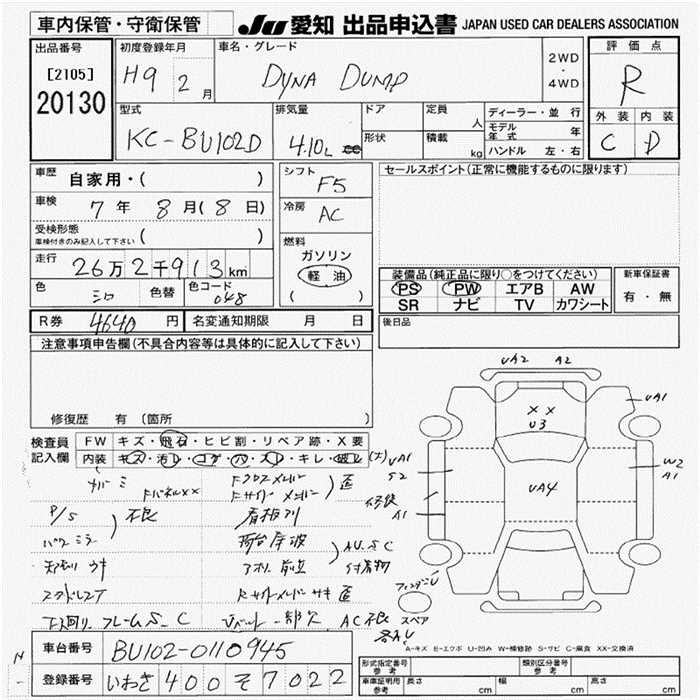 車内保管・守衛保管
JU 愛知 出品申込書 JAPAN USED CAR DEALERS ASSOCIATION
出品番号
[2105]
20130
初度登録年月
H9 2月
車名・グレード
DYNA DUMP
2WD
・
4WD
評価点
R
外装 内装
C D
型式
KC-BU102D
排気量
4.10L
ドア
形状
定員 人
積載 kg
ディーラー・並行
モデル年式 年
ハンドル 左・右
車歴 自家用・( )
車検 7年 8月(8日)
受検形態
車検付きのみ記入して下さい ( )
走行 26万2千913km
色 シロ 色替 色コード 048
シフト F5
冷房 AC
燃料
ガソリン
軽油
( )
セールスポイント(正常に機能するものに限ります)
装備品(純正品に限り○をつけてください)
PS PW エアB AW
SR ナビ TV カワシート
新車保証書
有・無
R券 4640円 名変通知期限 月 日
後日品
注意事項申告欄(不具合内容等は具体的に記入して下さい)
修復歴 有 〔箇所
検査員記入欄
FW キズ・飛石・ヒビ割・リペア跡・X要
内装 キズ・汚レ・コゲ・穴・スレ・キレ・破レ(大)
UA2 A2
UA1
XX
U3
UA1
S2
UA4
W2
A1
修復
A1
FパネルXX
Fクロスメンバー
Fサイドメンバー
歪
P/S
パワミラー
不良
看板別
荷台岸波
アオリ前立
AU.S.C
付着物
Rサイドメンバーサキ歪
下廻リ フレームS.C
AC不良
各AU
スペア
A-キズ E-エクボ U-凹み W-補修跡 S-サビ C-腐食 XX-交換済
車台番号 BU102-0110945
登録番号 いわき400そ7022
形式指定番号
参考
類別区分番号
参考
車両証明用
参考
長さ cm
幅 cm
高さ cm